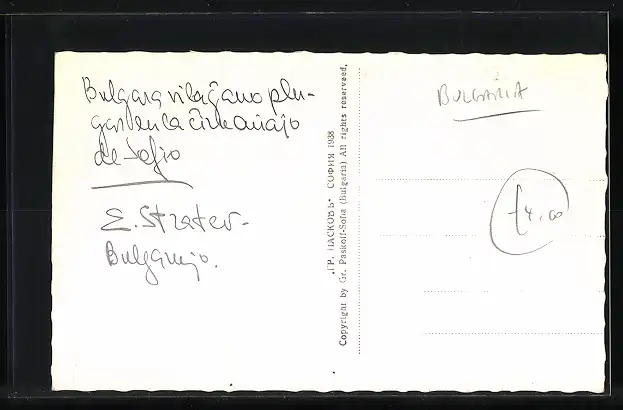 Bulgara vilaĝano plu-
gas en la ĉirkaŭaĵo
de Sofio
E. Strater-
Bulgarujo.
„ГР. ПАСКОВЪ" СОФИЯ 1938
Copyright by Gr. Paskoff-Sofia (Bulgaria) All rights reserved.
BULGARIA
£4.00